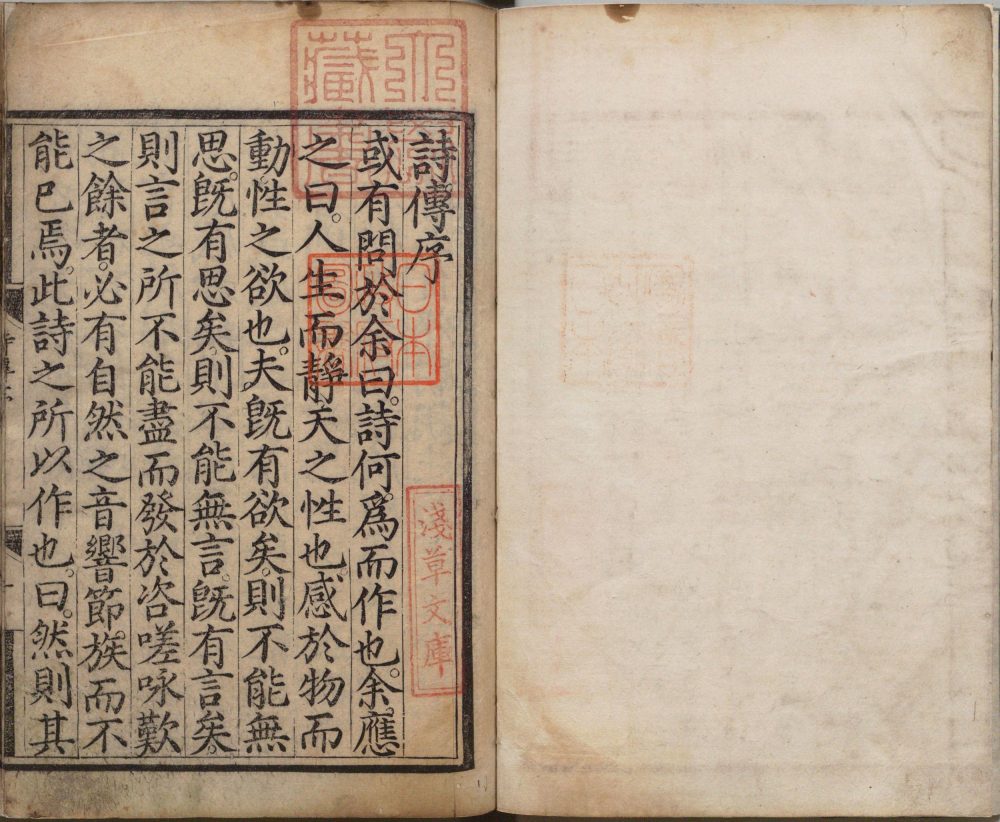 詩傳序
或有問於余曰。詩何爲而作也。余應
之曰。人生而靜。天之性也。感於物而
動。性之欲也。夫既有欲矣。則不能無
思。既有思矣。則不能無言。既有言矣。
則言之所不能盡而發於咨嗟咏歎
之餘者。必有自然之音響節族而不
能已焉。此詩之所以作也。曰。然則其
日本
淺草文庫